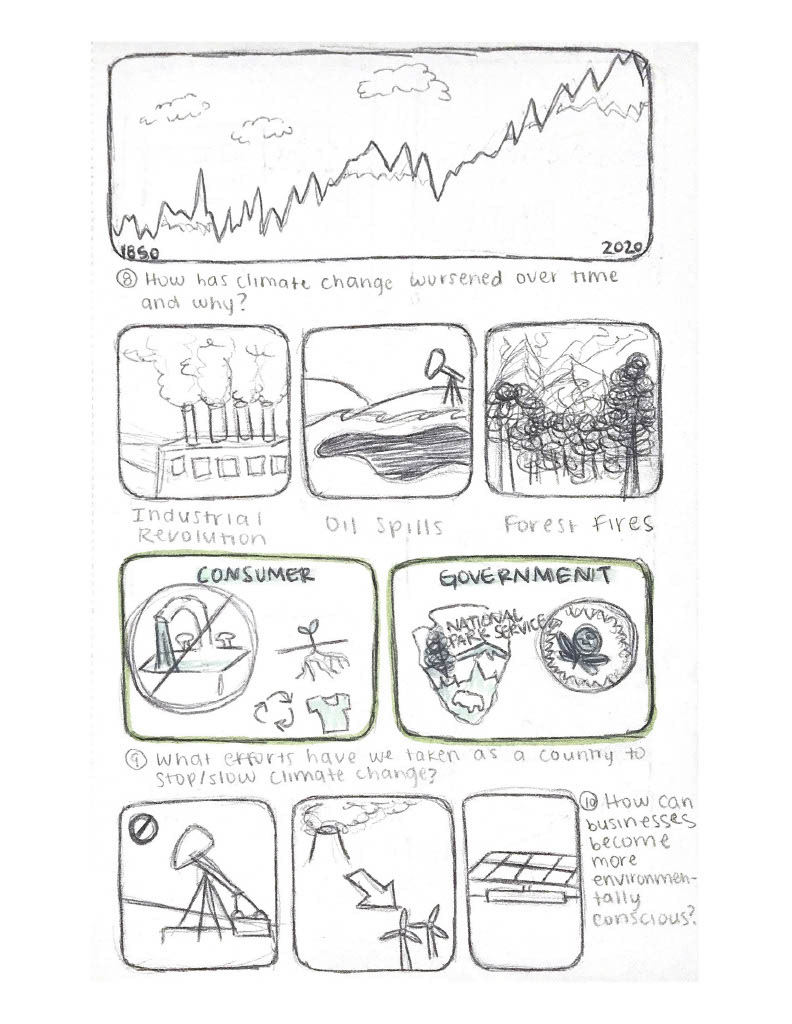 1850
2020
⑧ How has climate change worsened over time
and why?
Industrial
Revolution
Oil Spills
Forest Fires
CONSUMER
GOVERNMENT
NATIONAL
PARK SERVICE
⑨ What efforts have we taken as a country to
stop/slow climate change?
⑩ How can
businesses
become
more
environmen-
tally
conscious?